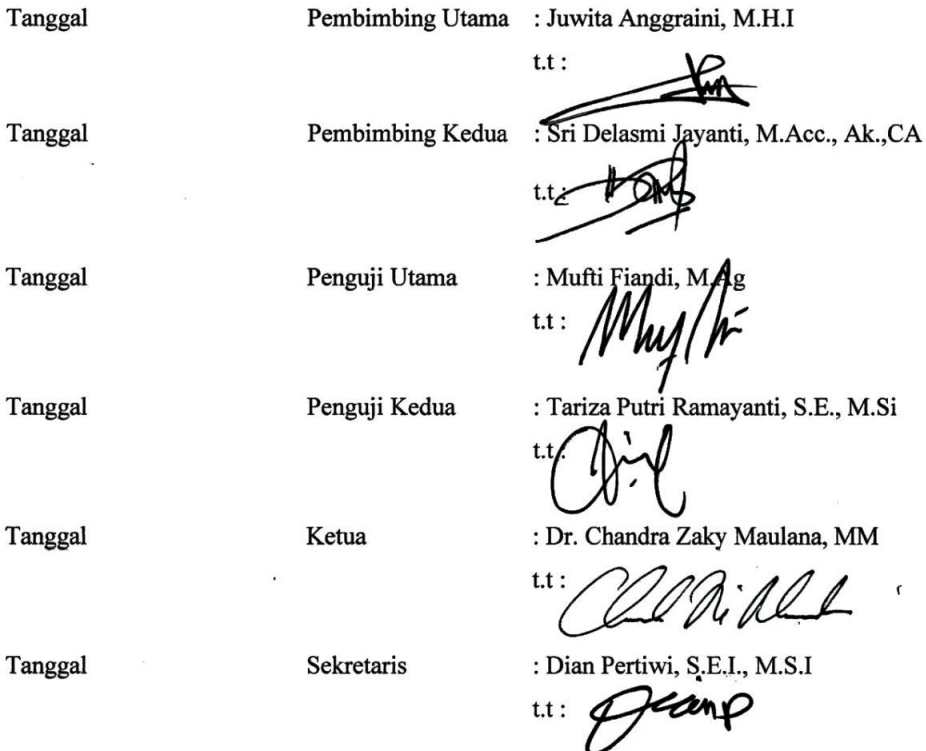 Tanggal Pembimbing Utama : Juwita Anggraini, M.H.I
t.t :
Tanggal Pembimbing Kedua : Sri Delasmi Jayanti, M.Acc., Ak.,CA
t.t :
Tanggal Penguji Utama : Mufti Fiandi, M.Ag
t.t :
Tanggal Penguji Kedua : Tariza Putri Ramayanti, S.E., M.Si
t.t :
Tanggal Ketua : Dr. Chandra Zaky Maulana, MM
t.t :
Tanggal Sekretaris : Dian Pertiwi, S.E.I., M.S.I
t.t :